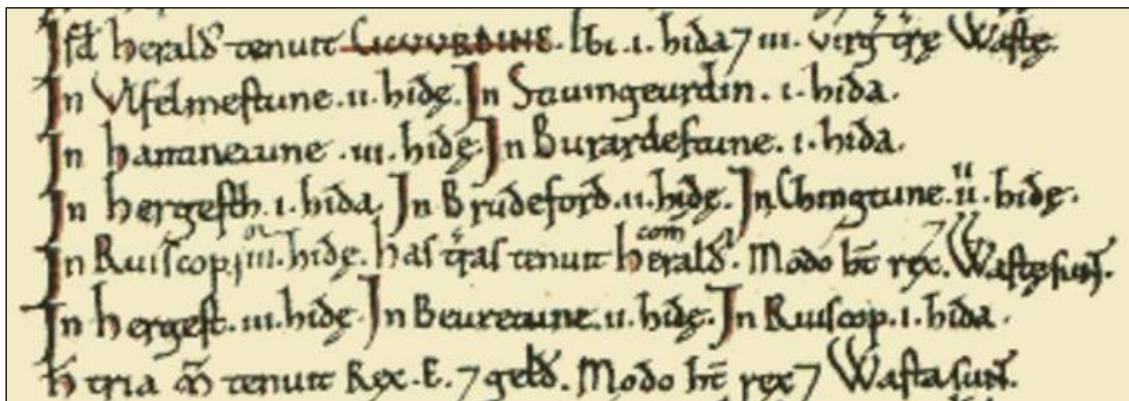 Isđ heralđ tenuit CICUURDINE. Ibi .i. hida 7 iii. virg̃ tr̃ę Waste.
In Vlfelmestune .ii. hidę. In Stiuingeurdin. i. hida.
In hantinetune .iii. hidę. In Burardestune. i. hida.
In hergesth. i. hida. In Brudeford .ii. hidę. In Chingtune. ii. hidę.
In Ruiscop. iii. hidę. has tr̃as tenuit com̃ heralđ. Modo ht̃ rex. Waste sun̄t.
In hergest. iii. hidę. In Beuretune .ii. hidę. In Ruiscop. i. hida.
h̃ tria m̃ tenuit Rex. E. 7 gelđ. Modo ht̃ rex 7 Wasta sun̄t.